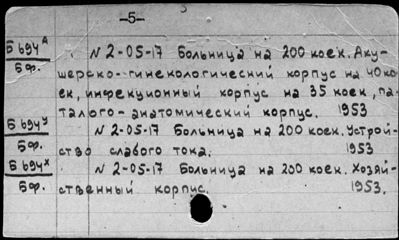 -5-
Б 694А N 2-05-17 Больница на 200 коек. Аку-
5ф. шерско-гинекологический корпус на 40 ко-
ек, инфекционный корпус на 35 коек, па-
талого-анатомический корпус. 1953
Б 694У N 2-05-17 Больница на 200 коек. Устрой-
5ф. ство слабого тока. 1953
Б 694Х N 2-05-17 Больница на 200 коек. Хозяй-
5ф. ственный корпус. 1953.